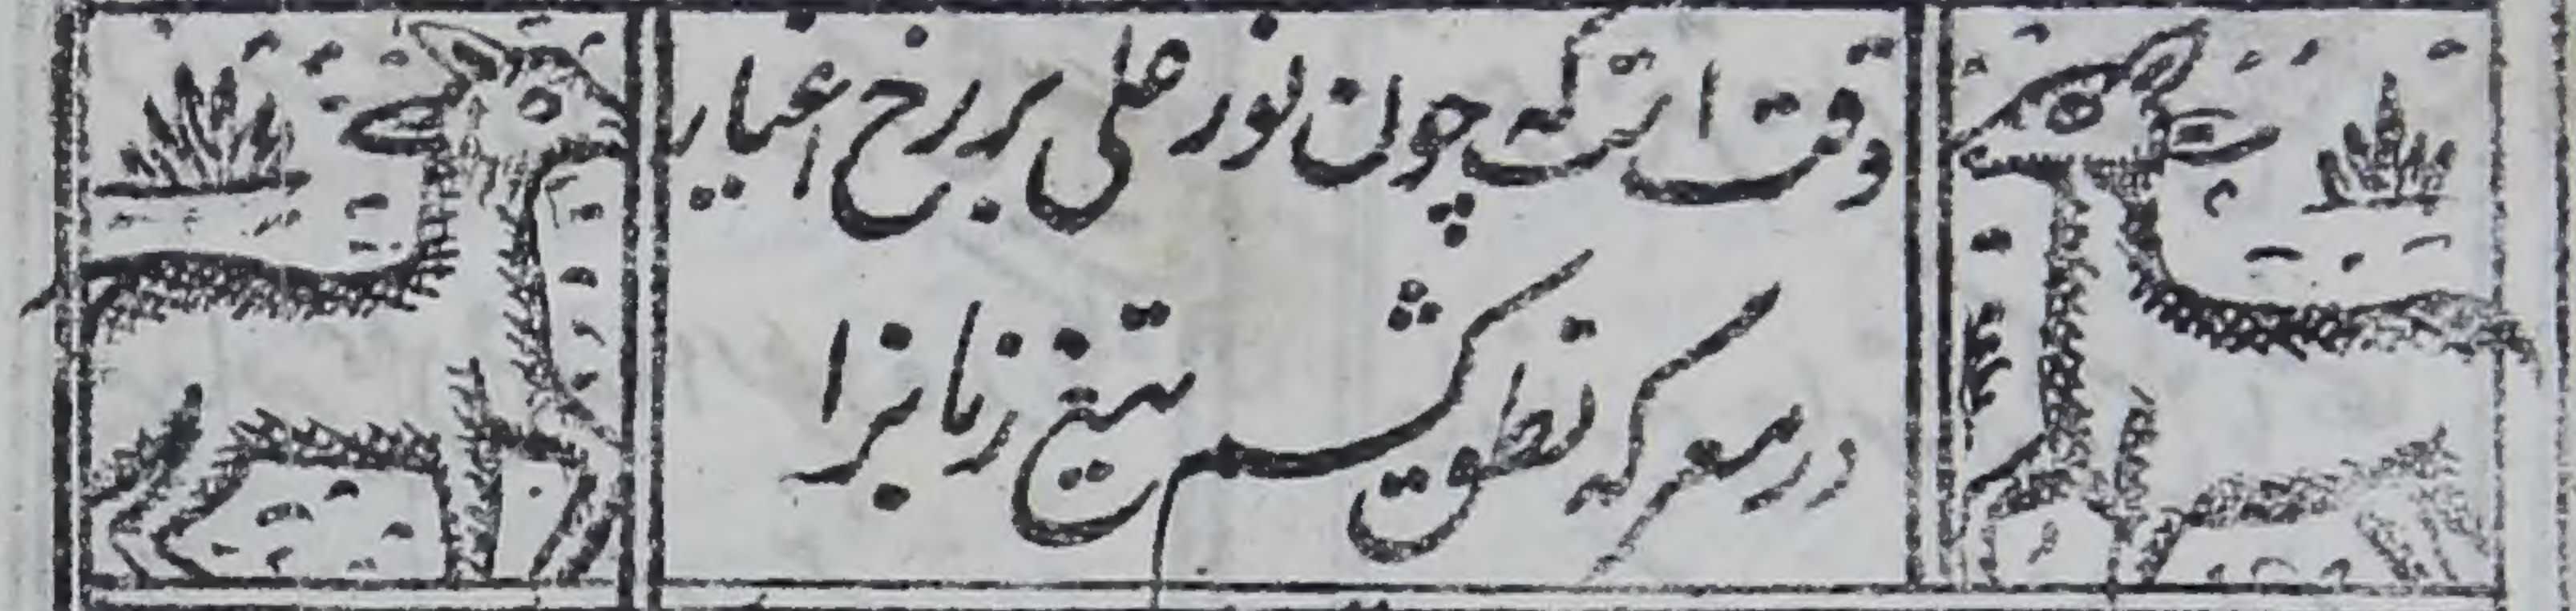 وقت است که چون نور علی بر رخ اغیار
در معرکه نطق کشم تیغ زبانرا